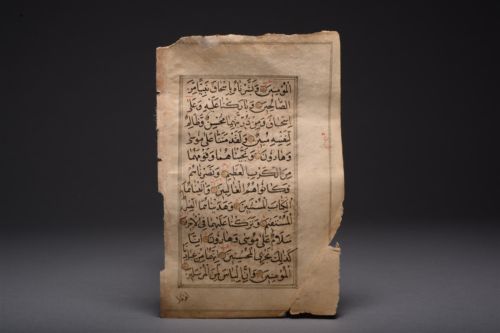 الْمُؤْمِنِينَ وَبَشَّرْنَاهُ بِإِسْحَاقَ نَبِيًّا مِنَ
الصَّالِحِينَ وَبَارَكْنَا عَلَيْهِ وَعَلَى
إِسْحَاقَ وَمِنْ ذُرِّيَّتِهِمَا مُحْسِنٌ وَظَالِمٌ
لِنَفْسِهِ مُبِينٌ وَلَقَدْ مَنَنَّا عَلَى مُوسَى
وَهَارُونَ وَنَجَّيْنَاهُمَا وَقَوْمَهُمَا
مِنَ الْكَرْبِ الْعَظِيمِ وَنَصَرْنَاهُمْ
فَكَانُوا هُمُ الْغَالِبِينَ وَآتَيْنَاهُمَا
الْكِتَابَ الْمُسْتَبِينَ وَهَدَيْنَاهُمَا الصِّرَاطَ
الْمُسْتَقِيمَ وَتَرَكْنَا عَلَيْهِمَا فِي الْآخِرِينَ
سَلَامٌ عَلَى مُوسَى وَهَارُونَ إِنَّا
كَذَلِكَ نَجْزِي الْمُحْسِنِينَ إِنَّهُمَا مِنْ عِبَادِنَا
الْمُؤْمِنِينَ وَإِنَّ إِلْيَاسَ لَمِنَ الْمُرْسَلِينَ